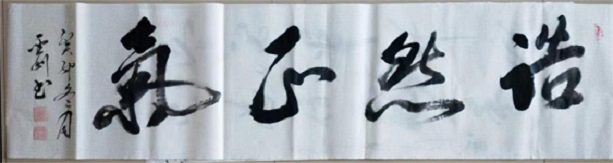 浩然正氣
癸卯冬月
书